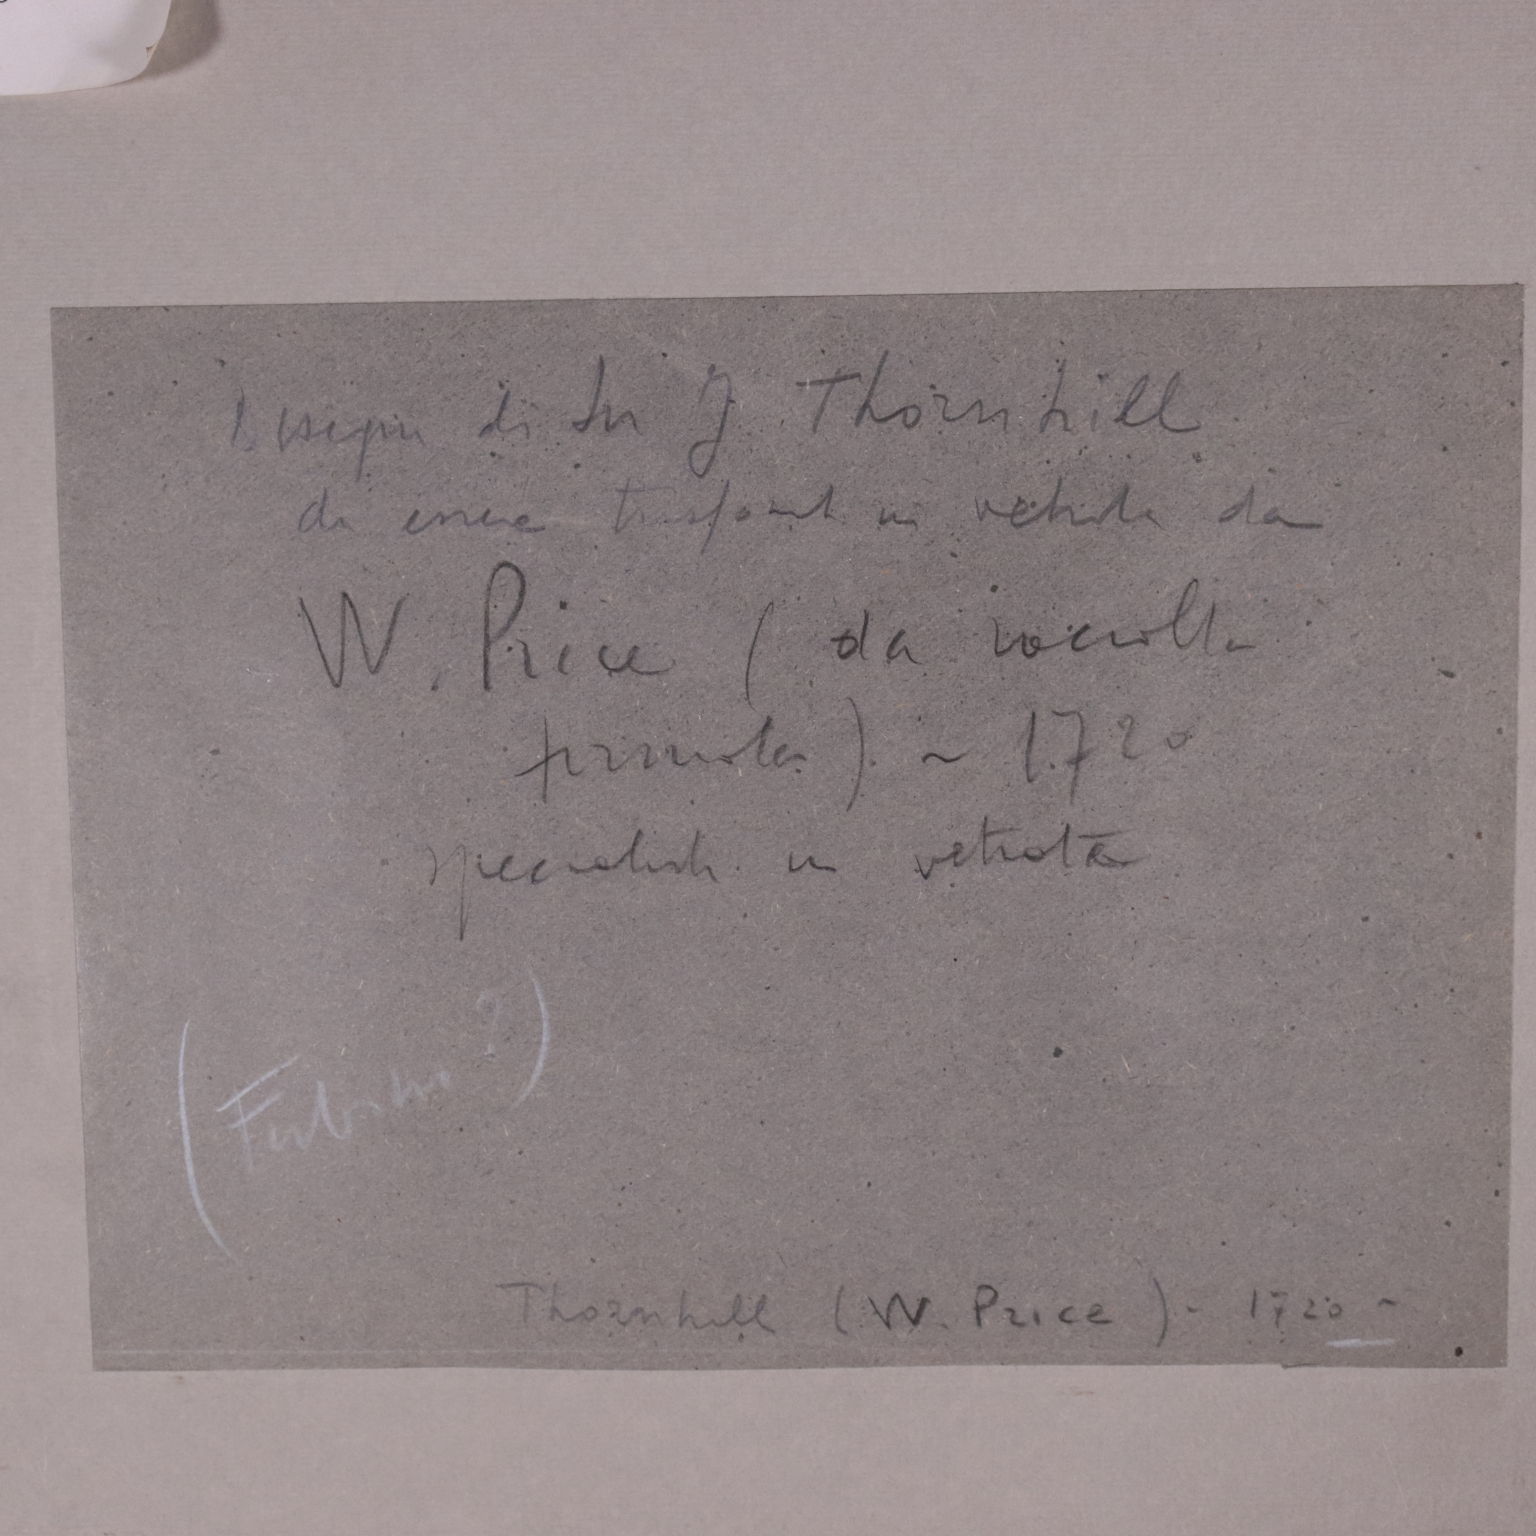 Disegni di Sir J. Thornhill
da essere trasformati in vetrata da
W. Price (da raccolta
firmata) ~ 1720
specialista in vetrata
( ?)
Thornhill (W. Price) - 1720 -